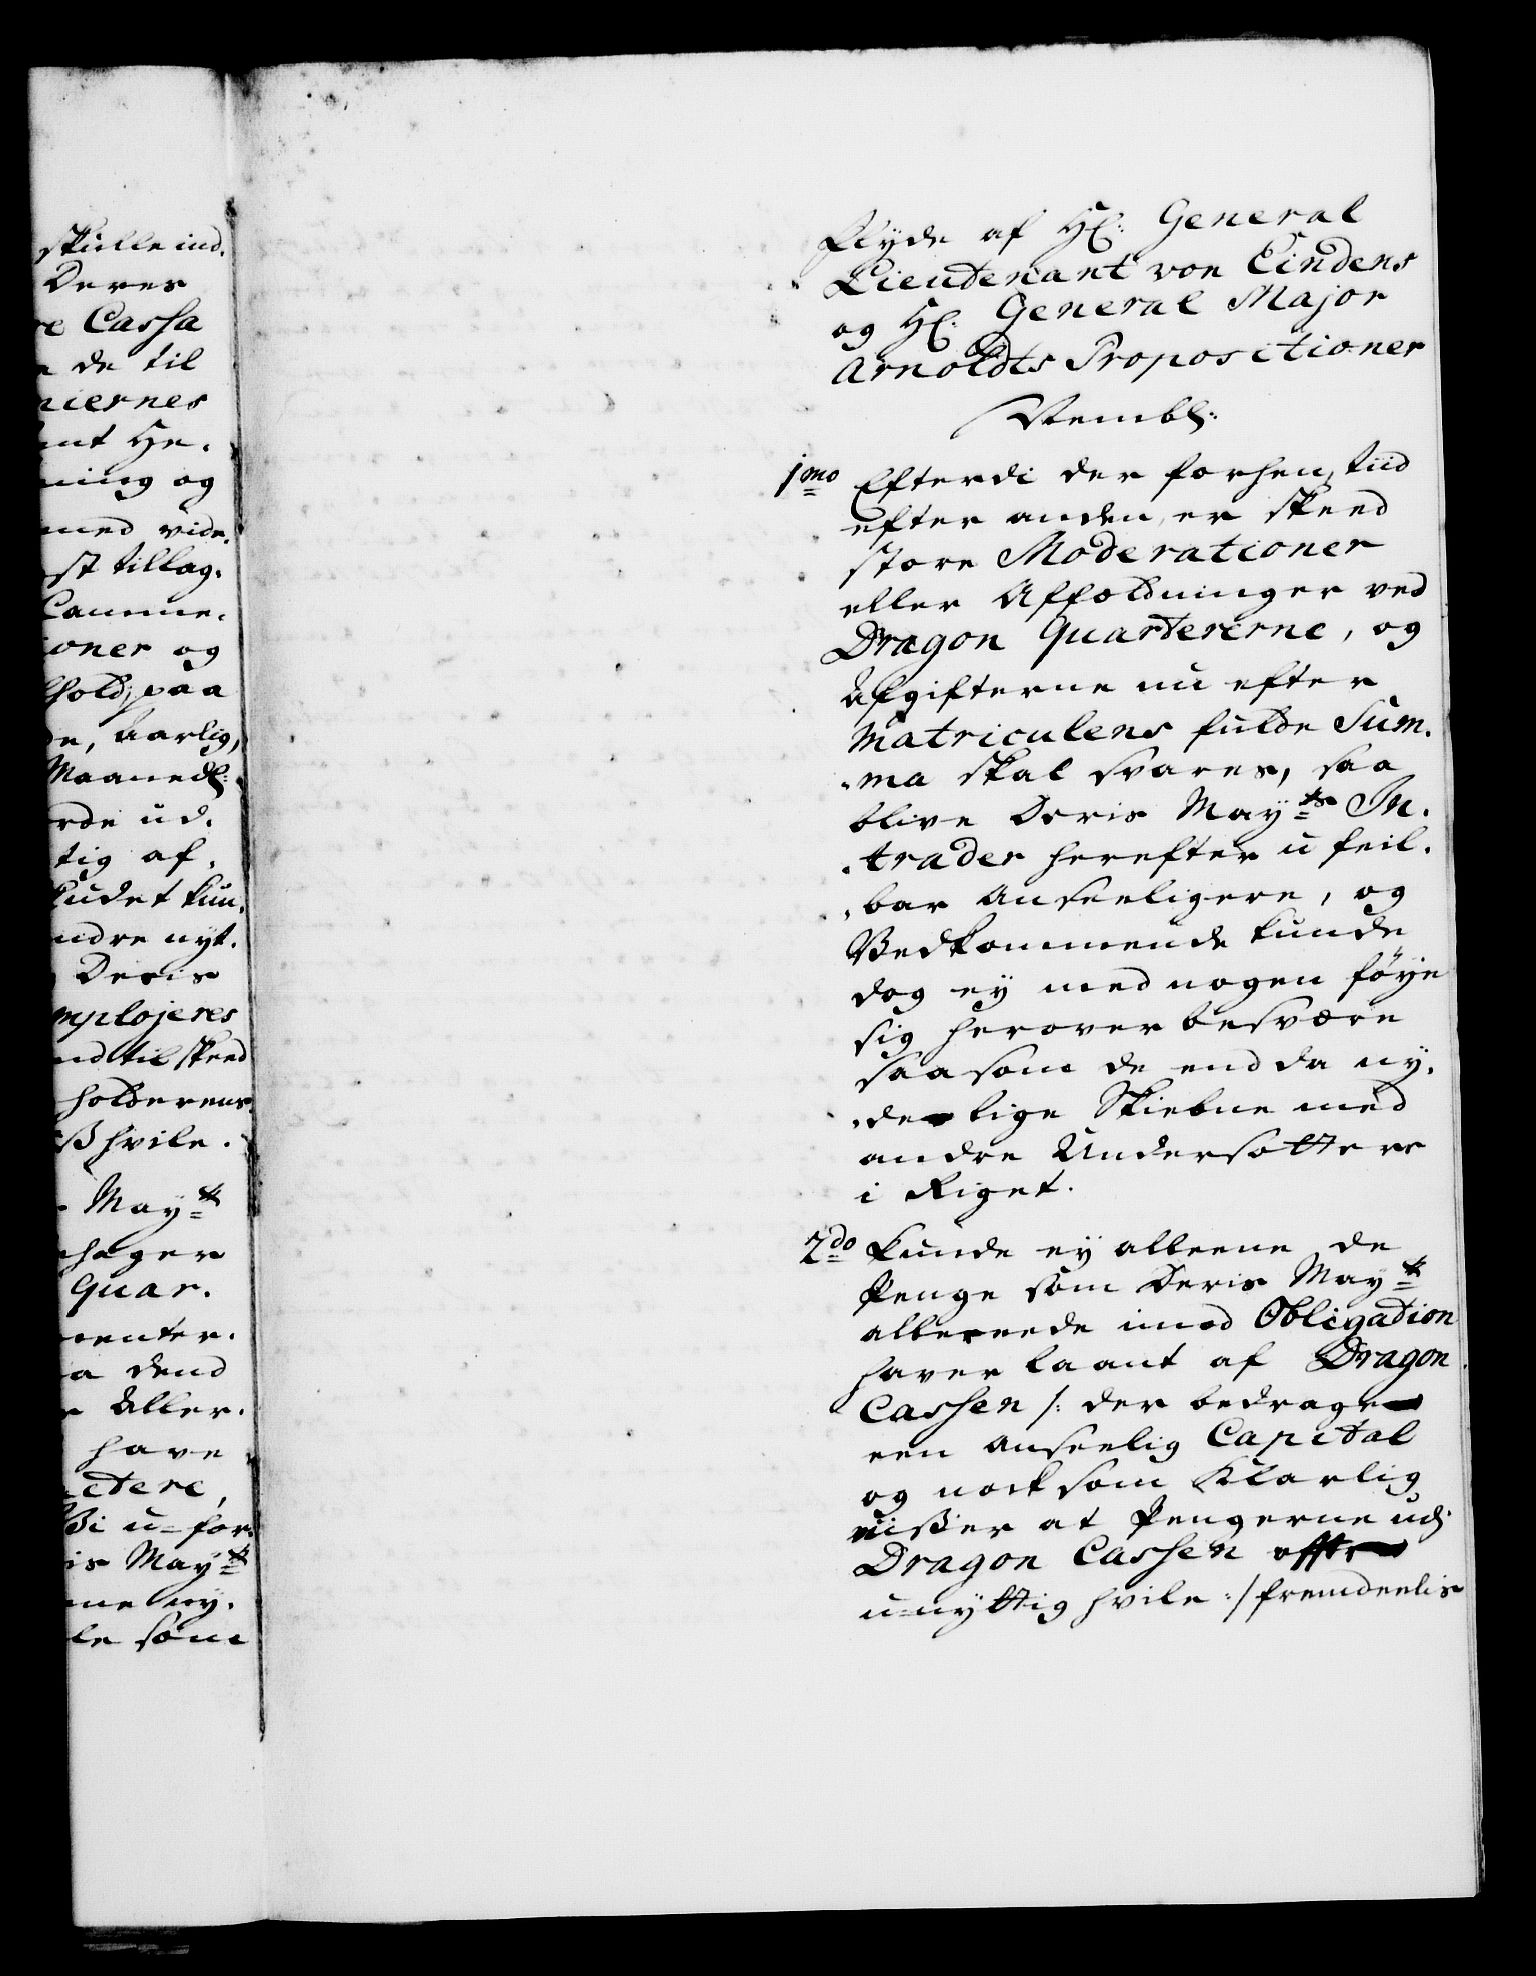 skulle ind-
Deres
Cassa
de til
ning og
med vide-
st tillag-
Camme-
oner og
hold, paa
de, aarlig,
Maanedl:
rde ud-
tig af-
ludet kun-
ndre nyt-
Deris
mplojeres
nd til skeed
holderens
hvile.
May.ts
Quar-
menter-
a dend
Aller-
have
ctere,
u-for-
is May.ts
me ny-
le som
flyde af Hr: General
Lieutenant von Lindens
og Hr: General Major
Arnoldts Propositioner
Nembl:
1mo Efterdi der forhen, tiid
efter anden, er skeed
store Moderationer
eller Affældninger ved
Dragon Quartererne, og
Afgifterne nu efter
Matriculens fulde Sum-
-ma skal svares, saa
blive Deris May.ts In-
-trader herefter u feil-
-bar Anseeligere, og
Vedkommende kunde
dog ey med nogen föye
sig herover besvære
saasom de end da ny-
-de lige Skiebne med
andre Undersotterer
i Riget.
2do kunde ey alleene de
Penge som Deris May.ts
allereede imod Obligation
haver laant af Dragon
Cassen /: der bedrager
een anseelig Capital
og nocksom Klarlig
viiser at Pengerne udj
Dragon Cassen offte
u-nyttig hvile :/ fremdeelis